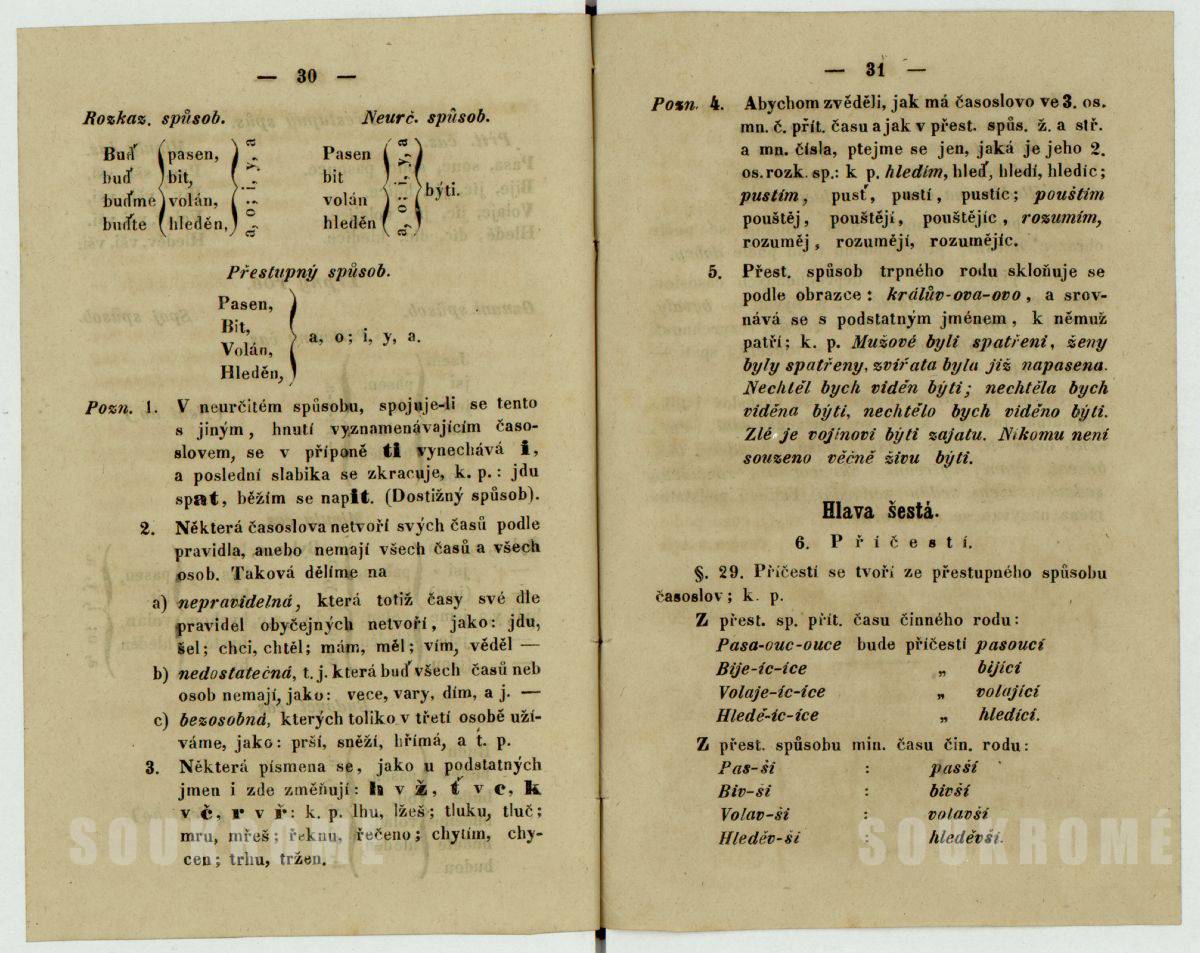 — 30 —
Rozkaz. spůsob. Neurč. spůsob.
Buď pasen, a, o; i, y, a Pasen a, o; i, y, a býti.
buď bit, bit
buďme volán, volán
buďte hleděn, hleděn
Přestupný spůsob.
Pasen,
Bit,
Volán, a, o; i, y, a.
Hleděn,
Pozn. 1. V neurčitém spůsobu, spojuje-li se tento
s jiným, hnutí vyznamenávajícím časo-
slovem, se v příponě ti vynechává i,
a poslední slabika se zkracuje, k. p.: jdu
spat, běžím se napit. (Dostižný spůsob).
2. Některá časoslova netvoří svých časů podle
pravidla, anebo nemají všech časů a všech
osob. Taková dělíme na
a) nepravidelná, která totiž časy své dle
pravidel obyčejných netvoří, jako: jdu,
šel; chci, chtěl; mám, měl; vím, věděl —
b) nedostatečná, t. j. která buď všech časů neb
osob nemají, jako: vece, vary, dím, a j. —
c) bezosobná, kterých toliko v třetí osobě uží-
váme, jako: prší, sněží, hřímá, a t. p.
3. Některá písmena se, jako u podstatných
jmen i zde změňují: h v ž, ť v c, k
v č, r v ř: k. p. lhu, lžeš; tluku, tluč;
mru, mřeš; řeknu, řečeno; chytím, chy-
cen; trhu, tržen.
— 31 —
Pozn. 4. Abychom zvěděli, jak má časoslovo ve 3. os.
mn. č. přít. času a jak v přest. spůs. ž. a stř.
a mn. čísla, ptejme se jen, jaká je jeho 2.
os. rozk. sp.: k p. hledím, hleď, hledí, hledíc;
pustím, pusť, pustí, pustíc; pouštím
pouštěj, pouštějí, pouštějíc, rozumím,
rozuměj, rozumějí, rozumějíc.
5. Přest. spůsob trpného rodu skloňuje se
podle obrazce: králův-ova-ovo, a srov-
nává se s podstatným jménem, k němuž
patří; k. p. Mužové byli spatřeni, ženy
byly spatřeny, zvířata byla již napasena.
Nechtěl bych viděn býti; nechtěla bych
viděna býti, nechtělo bych viděno býti.
Zlé je vojínovi býti zajatu. Nikomu není
souzeno věčně živu býti.
Hlava šestá.
6. Příčestí.
§. 29. Příčestí se tvoří ze přestupného spůsobu
časoslov; k. p.
Z přest. sp. přít. času činného rodu:
Pasa-ouc-ouce bude příčestí pasoucí
Bije-íc-íce „ bijící
Volaje-íc-íce „ volající
Hledě-íc-íce „ hledící.
Z přest. spůsobu min. času čin. rodu:
Pas-ši : passí
Biv-ši : bivší
Volav-ši : volavší
Hleděv-ši : hleděvší.
SOUKROMÉ
SOUKROMÉ